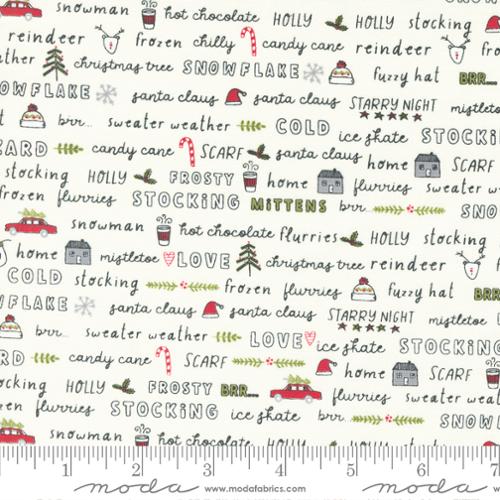 snowman hot chocolate HOLLY HOLLY stocking
reindeer frozen chilly candy cane reindeer
christmas tree SNOWFLAKE fuzzy hat BRR...
santa claus santa claus STARRY NIGHT mistletoe
brr... sweater weather COLD ice skate STOCKING
candy cane SCARF santa claus home SCARF
stocking HOLLY FROSTY home flurries sweater
frozen flurries STOCKING MITTENS brr...
snowman hot chocolate flurries HOLLY stocking
home mistletoe LOVE christmas tree reindeer
COLD stocking frozen flurries fuzzy hat BRR...
santa claus santa claus STARRY NIGHT mistletoe
brr... sweater weather LOVE ice skate STOCKING
candy cane SCARF home SCARF
stocking HOLLY FROSTY BRR... flurries sweater
flurries STOCKING ice skate brr...
snowman hot chocolate HOLLY HOLLY stocking
1 2 3 4 5 6 7
moda www.modafabrics.com moda www.modafabrics.com moda